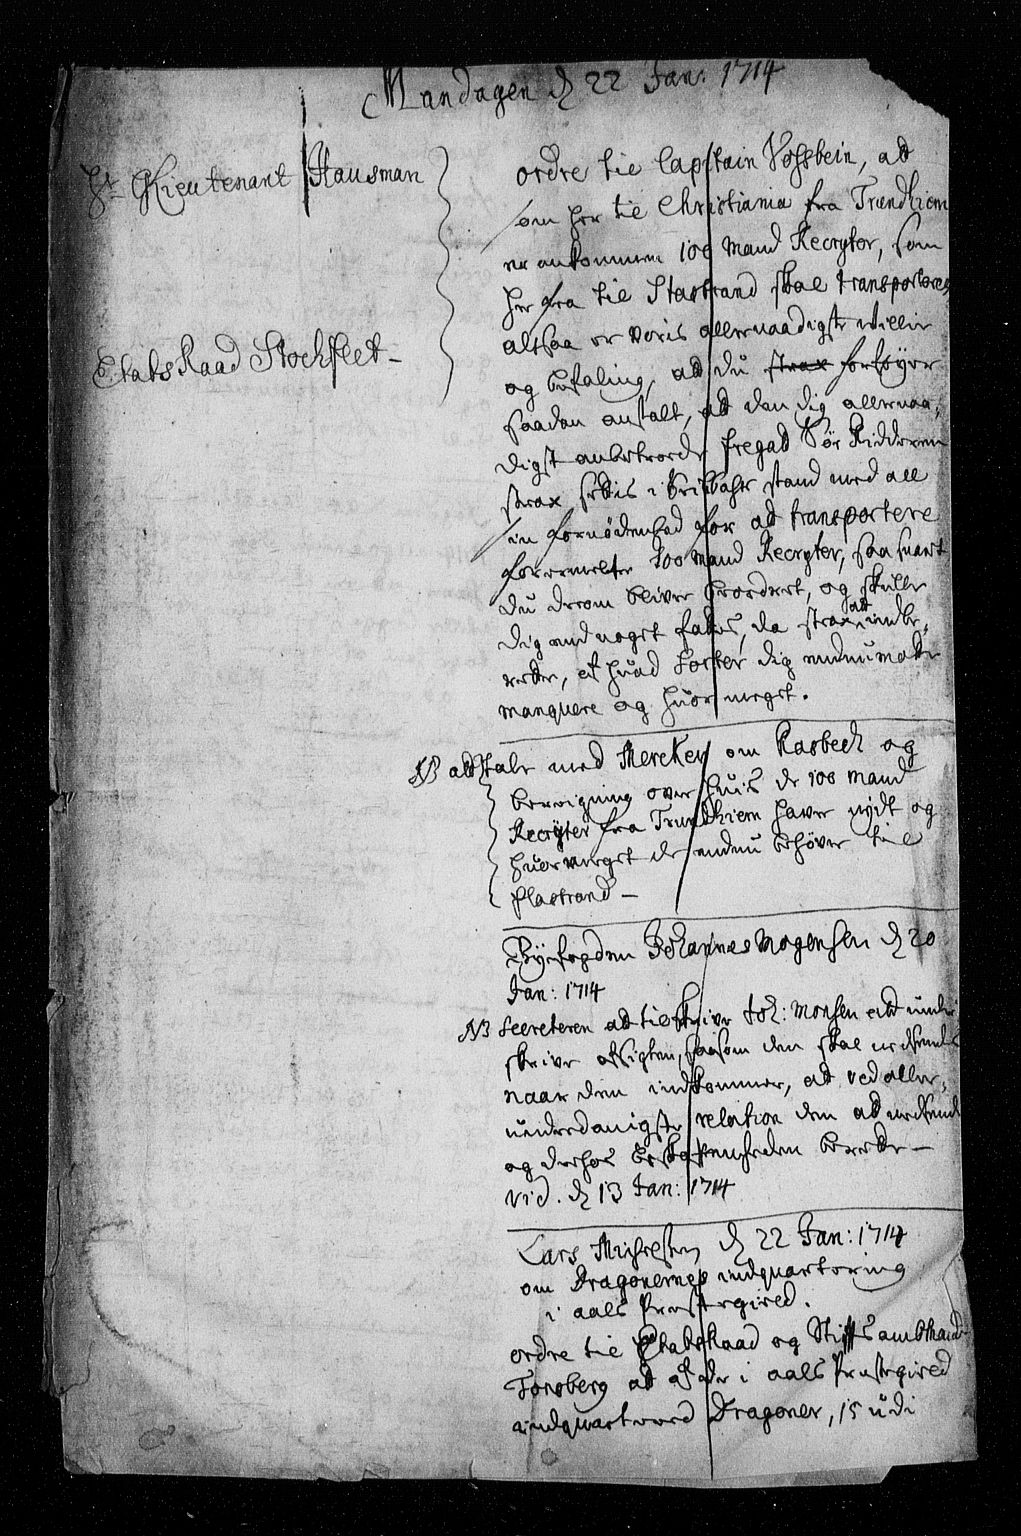 Mandagen d 22 Jan: 1714
Hr GLieutenant Hausman
Etats Raad Stochflet -
ordre til Captain Vosbein, at
som her til Christiania fra Trundhiem
er ankommen 100 Mand Recryter, som
her fra til Stastrand skal transporteres
altsaa er Voris allernaadigste Villie
og befaling, at du strax forføyer
saadan anstalt, at den dig allernaa,
digst anbetroede fregat Sør Ridderen
strax settis i seilbahr stand med all
sin fornødenhed for at transportere
forermelte 100 Mand Recryter, saa snart
du derom bliver beordret, og skulle
dig end noget fattes, da strax at indbe,
rette, et huad Sorter dig endnu matte
manquere og huor meget.
NB at tale med Mercker om Rasbech og
beregning over huis de 100 Mand
Recryter fra Trundhiem haver nydt og
huor meget de endnu behøver til
Flastrand -
Byefogden Johannes Mogensen d 20
Jan: 1714
NB Secreteren at tilskrive Joh: Monsen at under
skrive afsigten, saasom den skal nedsendes
naar den indkommer, at ved aller,
underdanigste relation den at nedsende
og derhos beskaffenheden berette -
vid. d 13 Jan: 1714
Lars Michelsen d 22 Jan: 1714
om Dragonernes indquartering
i aals Prestegield.
ordre til Etatsraad og Stiftsambtmand
Tonsberg at af de i aals Prestegield
indquarterede Dragoner, 15 udi